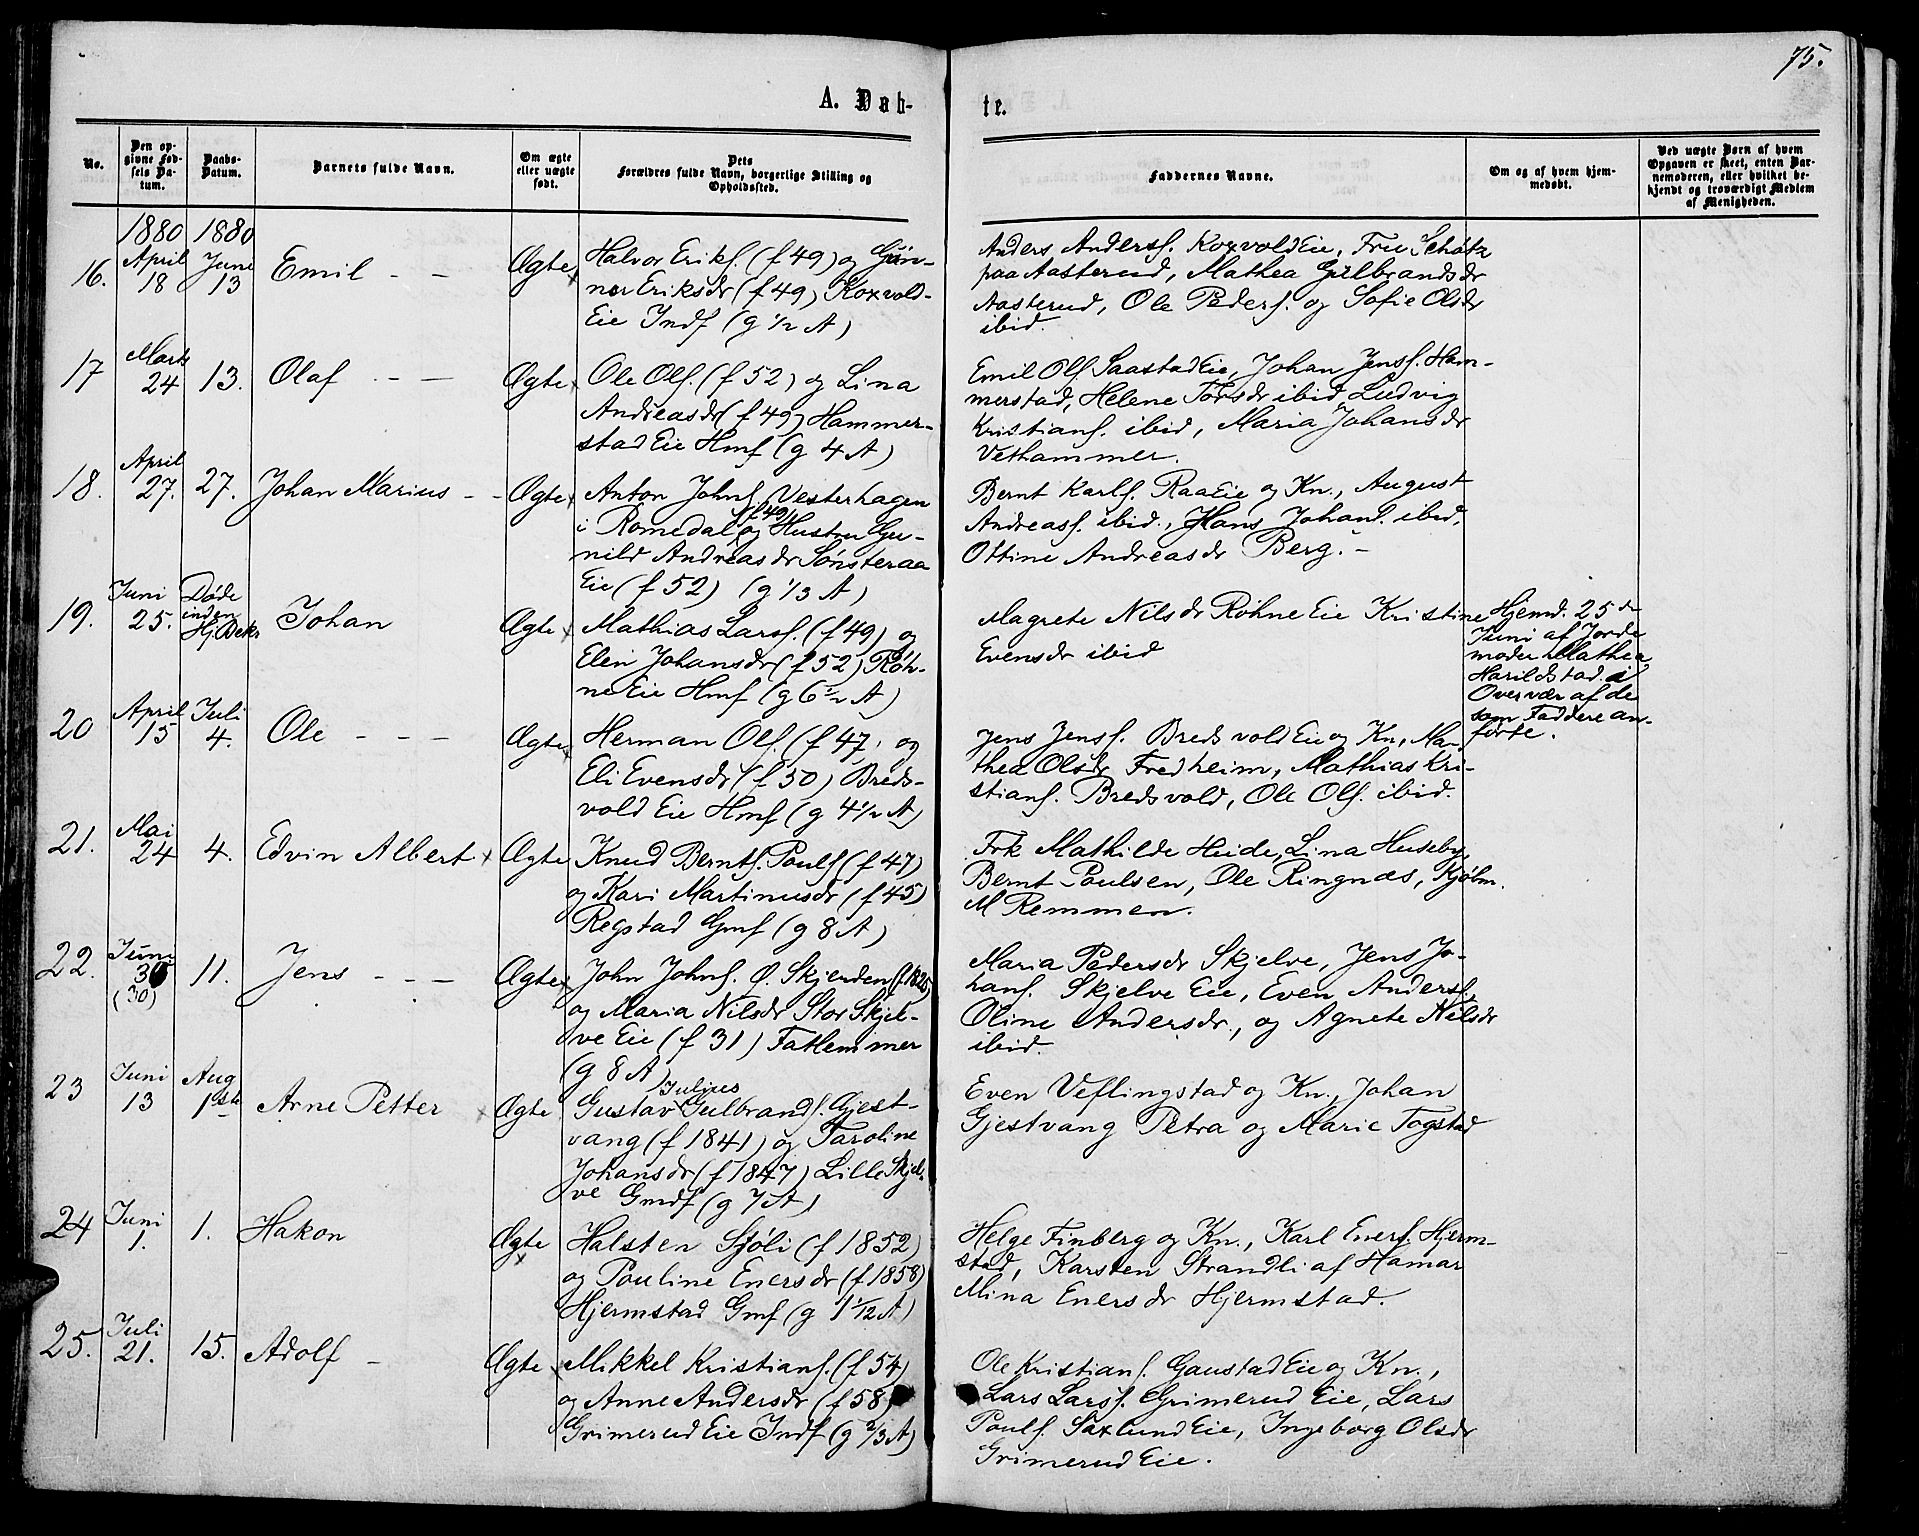 75.
A. Døb-
te.
No.
Den op-
givne Fød-
sels Da-
tum.
Daabs-
Datum.
Barnets fulde Navn.
Om ægte
eller uægte
født.
Dets
Forældres fulde Navn, borgerlige Stilling og
Opholdssted.
Faddernes Navne.
Om og af hvem hjem-
medøbt.
Ved uægte Børn af hvem
Opgaven er skeet, enten Bar-
nemoderen, eller hvilket be-
kjendt og troværdigt Medlem
af Menigheden.
1880 1880
16. April 18 Juni 13 Emil - - Ægte
Halvor Eriks. (f 49) og Gun-
nor Eriksdr (f 49) Koxvold-
Eie Indf (g 1/2 A)
Anders Anders. KoxvoldEie, Fru Schøtz
paa Aasterud, Mathea Gulbrandsdr
Aasterud, Ole Peders. og Sofie Olsdr
ibid.
17 Marts 24 13. Olaf - - Ægte
Ole Ols. (f 52) og Lina
Andreasdr (f 49) Hammer-
stad Eie Hmf (g 4 A)
Emil Ols. SaastadEie, Johan Jens. Ham-
merstad, Helene Torsdr ibid, Ludvig
Kristians. ibid, Maria Johansdr
Vethammer.
18. April 27. 27. Johan Marius - - Ægte
Anton Johns. Vesterhagen
i Romedal (f 49) og Hustru Gu-
nild Andreasdr Sønsteraa
Eie (f 52) (g 1/3 A)
Bernt Karls. RaaEie og Kn., August
Andreass. ibid., Hans Johans. ibid,
Ottine Andreasdr Berg. -
19. Juni 25. Døde inden Hj.Bekr Johan Ægte
Mathias Lars. (f 49) og
Elen Johansdr (f 52) Røh-
ne Eie Hmf (g 6 1/2 A)
Magrete Nilsdr Røhne Eie Kristine
Evensdr ibid
Hjemd. 25de
Juni af Jorde
moder Mathea
Harildstad i
Overvær af de
som Faddere an-
førte.
20 April 15 Juli 4. Ole - - - Ægte
Herman Ols. (f 47, og
Eli Evensdr (f 50) Breds-
vold Eie Hmf (g 4 1/2 A)
Jens Jens. Bredsvold Eie og Kn, Ma-
thea Olsdr Fredheim, Mathias Kri-
stians. Bredsvold, Ole Ols. ibid.
21. Mai 24 4. Edvin Albert Ægte
Knud Bernts. Pouls (f 47)
og Kari Martinusdr (f 45)
Regstad Gmf (g 8 A)
Frk Mathilde Heide, Lina Huseby,
Bernt Paulsen, Ole Ringnæs, Kjøbm.
M Remmen.
22. Juni 30 (30) 11. Jens - - Ægte
John Johns. Ø. Skjerden (f. 1825)
og Maria Nilsdr Stor Skjel-
ve Eie (f 31) Fatlemmer
(g 8 A)
Maria Pedersdr Skjelve, Jens Jo-
hans. Skjelve Eie, Even Anders.,
Oline Andersdr., og Agnete Nilsdr
ibid.
23 Juni 13 Aug 1ste Arne Petter Ægte
Gustav Julius Gulbrands. Gjest-
vang (f 1841) og Taroline
Johansdr (f 1847) Lille Skjel-
ve Gmdf (g 7 A)
Even Veflingstad og Kn., Johan
Gjestvang Petra og Marie Togstad
24 Juni 1. 1. Hakon Ægte
Halsten Sjøli (f 1852)
og Pouline Enersdr (f 1858)
Hjermstad Gmf (g 1 1/12 A)
Helge Finberg og Kn., Karl Eners. Hjerm-
stad, Karsten Strandli af Hamar
Mina Enersdr Hjermstad.
25. Juli 21. 15. Adolf - Ægte
Mikkel Kristians. (f 54)
og Anne Andersdr (f 58)
Grimerud Eie Indf (g 2/3 A)
Ole Kristians. GaustadEie og Kn.,
Lars Lars. Grimerud Eie, Lars
Pouls. Saxlund Eie, Ingeborg Olsdr
Grimerud Eie.